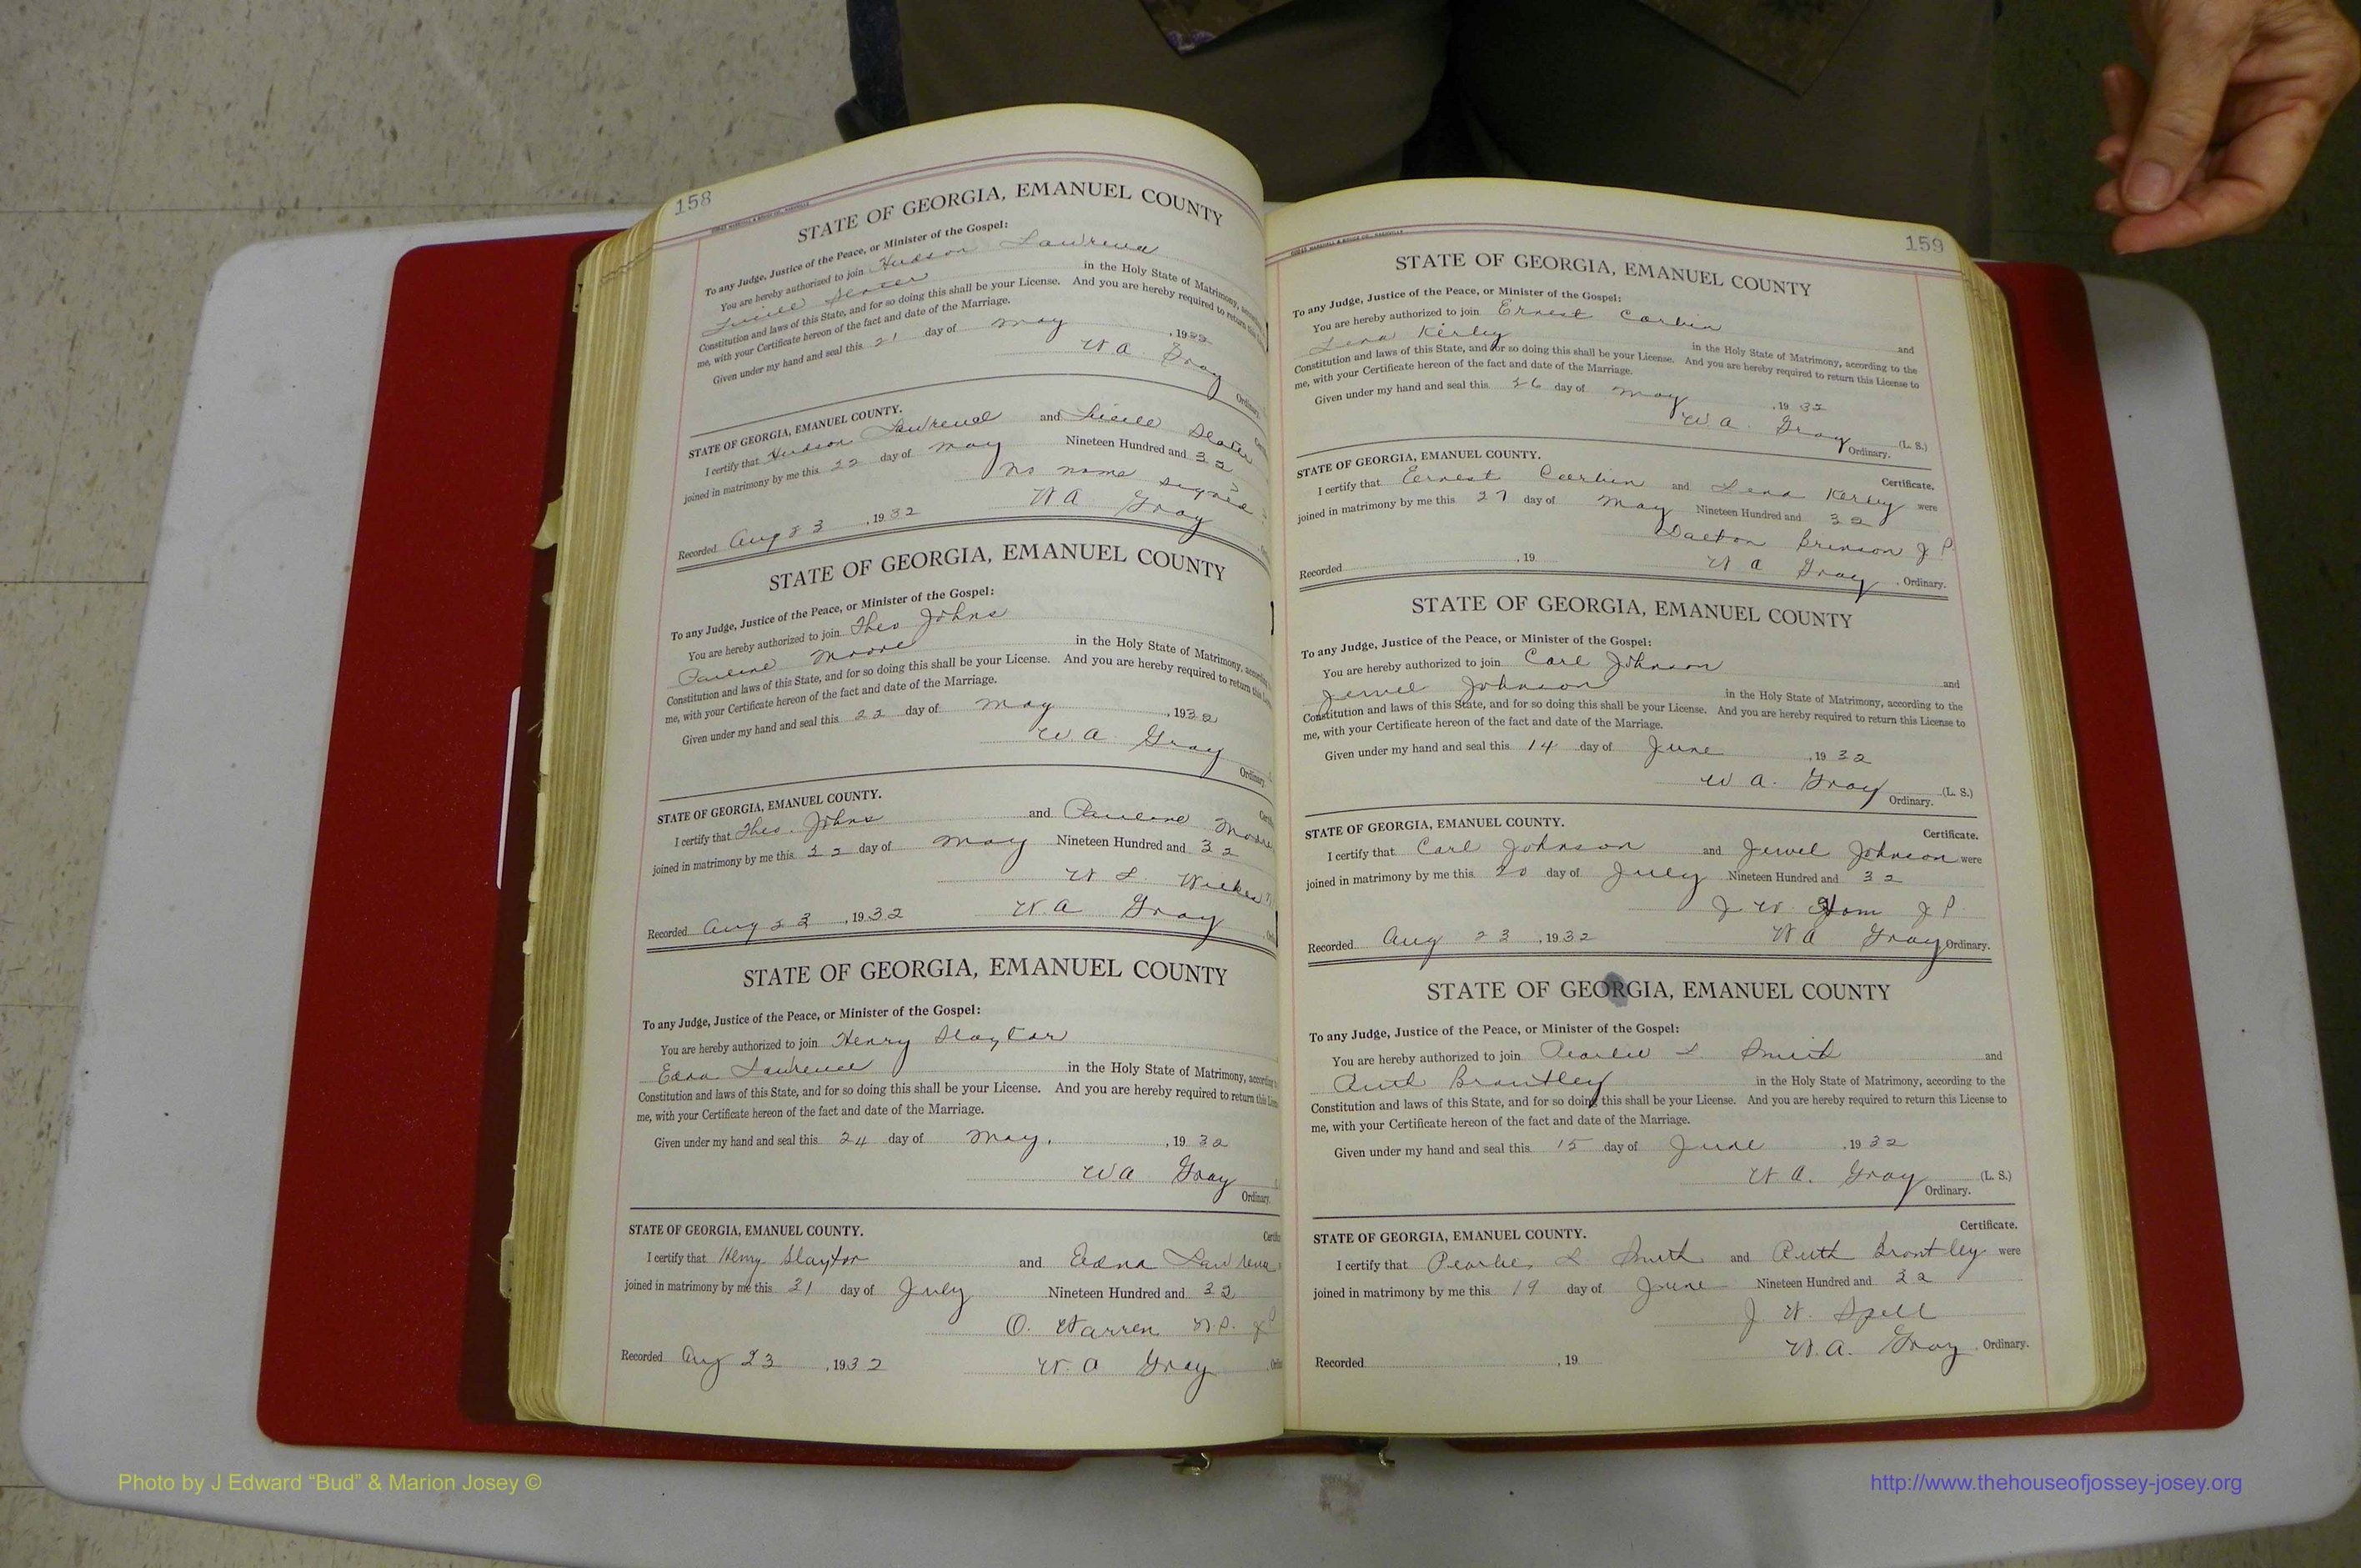 158
STATE OF GEORGIA, EMANUEL COUNTY
To any Judge, Justice of the Peace, or Minister of the Gospel:
You are hereby authorized to join Hudson Lawrence
Lucile Slater in the Holy State of Matrimony,
Constitution and laws of this State, and for so doing this shall be your License. And you are hereby required to return
me, with your Certificate hereon of the fact and date of the Marriage.
Given under my hand and seal this 21 day of May, 1932
W A Gray
Ordinary.
STATE OF GEORGIA, EMANUEL COUNTY.
I certify that Hudson Lawrence and Lucile Slater
joined in matrimony by me this 22 day of May Nineteen Hundred and 32
no name signed
Recorded Aug 23, 1932 W A Gray
STATE OF GEORGIA, EMANUEL COUNTY
To any Judge, Justice of the Peace, or Minister of the Gospel:
You are hereby authorized to join Theo Johns
Pauline Moore in the Holy State of Matrimony,
Constitution and laws of this State, and for so doing this shall be your License. And you are hereby required to return this
me, with your Certificate hereon of the fact and date of the Marriage.
Given under my hand and seal this 22 day of May, 1932
W A Gray
Ordinary.
STATE OF GEORGIA, EMANUEL COUNTY.
I certify that Theo. Johns and Pauline Moore
joined in matrimony by me this 22 day of May Nineteen Hundred and 32
W L
Recorded Aug 23, 1932 W. A Gray
STATE OF GEORGIA, EMANUEL COUNTY
To any Judge, Justice of the Peace, or Minister of the Gospel:
You are hereby authorized to join Henry Slaytor
Edna Lawrence in the Holy State of Matrimony, according
Constitution and laws of this State, and for so doing this shall be your License. And you are hereby required to return this
me, with your Certificate hereon of the fact and date of the Marriage.
Given under my hand and seal this 24 day of May, 1932
W A Gray
Ordinary.
STATE OF GEORGIA, EMANUEL COUNTY.
I certify that Henry Slaytor and Edna Lawrence
joined in matrimony by me this 31 day of July Nineteen Hundred and 32
O. Warren N.P. & J P
Recorded Aug 23, 1932 W. A Gray
159
STATE OF GEORGIA, EMANUEL COUNTY
To any Judge, Justice of the Peace, or Minister of the Gospel:
You are hereby authorized to join Ernest Corbin and
Lena Kerley in the Holy State of Matrimony, according to the
Constitution and laws of this State, and for so doing this shall be your License. And you are hereby required to return this License to
me, with your Certificate hereon of the fact and date of the Marriage.
Given under my hand and seal this 26 day of May, 1932
W A. Gray (L. S.)
Ordinary.
STATE OF GEORGIA, EMANUEL COUNTY.
Certificate.
I certify that Ernest Corbin and Lena Kerley were
joined in matrimony by me this 27 day of May Nineteen Hundred and 32
Dalton Brinson J P
Recorded , 19 W A Gray, Ordinary.
STATE OF GEORGIA, EMANUEL COUNTY
To any Judge, Justice of the Peace, or Minister of the Gospel:
You are hereby authorized to join Carl Johnson and
Jewel Johnson in the Holy State of Matrimony, according to the
Constitution and laws of this State, and for so doing this shall be your License. And you are hereby required to return this License to
me, with your Certificate hereon of the fact and date of the Marriage.
Given under my hand and seal this 14 day of June, 1932
W A. Gray (L. S.)
Ordinary.
STATE OF GEORGIA, EMANUEL COUNTY.
Certificate.
I certify that Carl Johnson and Jewel Johnson were
joined in matrimony by me this 20 day of July Nineteen Hundred and 32
J W. J P.
Recorded Aug 23, 1932 W A Gray Ordinary.
STATE OF GEORGIA, EMANUEL COUNTY
To any Judge, Justice of the Peace, or Minister of the Gospel:
You are hereby authorized to join Pearlie L Smith and
Ruth Brantley in the Holy State of Matrimony, according to the
Constitution and laws of this State, and for so doing this shall be your License. And you are hereby required to return this License to
me, with your Certificate hereon of the fact and date of the Marriage.
Given under my hand and seal this 15 day of June, 1932
W A. Gray (L. S.)
Ordinary.
STATE OF GEORGIA, EMANUEL COUNTY.
Certificate.
I certify that Pearlie L Smith and Ruth Brantley were
joined in matrimony by me this 19 day of June Nineteen Hundred and 32
J W. Spell
Recorded , 19 W. A. Gray, Ordinary.
Photo by J Edward “Bud” & Marion Josey ©
http://www.thehouseofjossey-josey.org